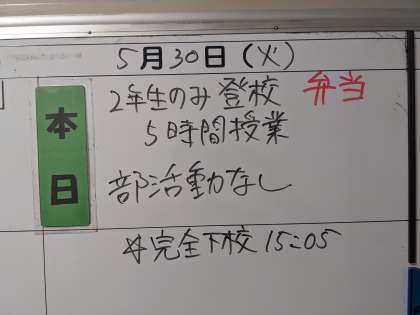 5月30日(火)
本日
2年生のみ登校 弁当
5時間授業
部活動なし
※完全下校 15:05